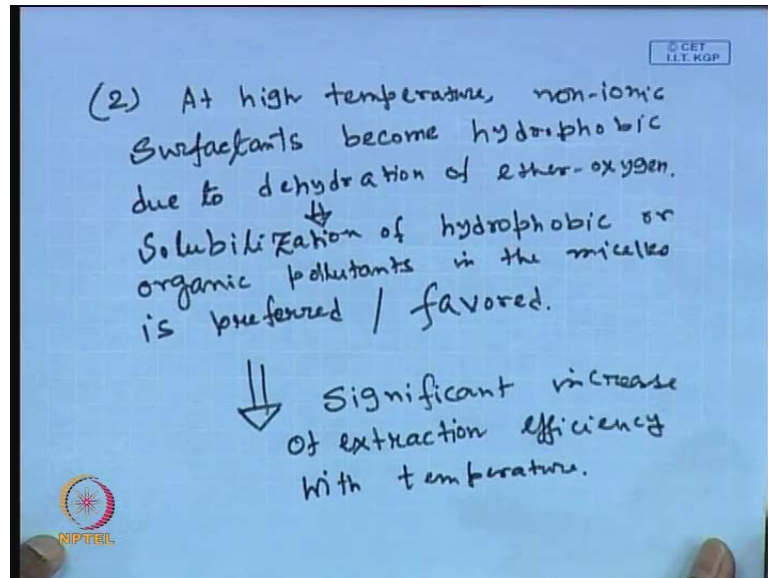 © CET
I.I.T. KGP
(2) At high temperature, non-ionic
Surfactants become hydrophobic
due to dehydration of ether-oxygen.
⇓
Solubilization of hydrophobic or
organic pollutants in the micelles
is preferred / favored.
⇓ Significant increase
of extraction efficiency
with temperature.
NPTEL